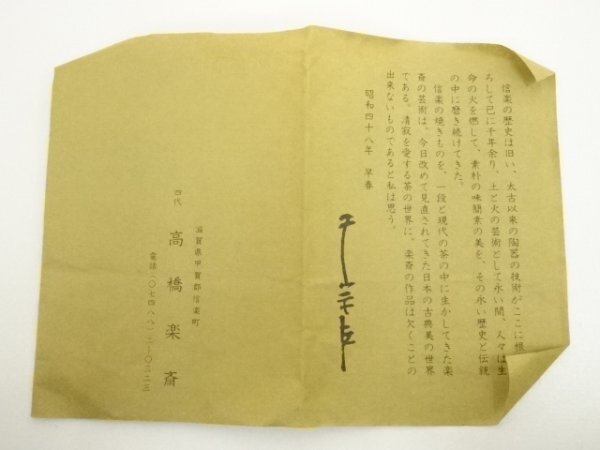 信楽の歴史は旧い、太古以来の陶器の技術がここに根
ろして已に千年余り、土と火の芸術として永い間、人々は生
命の火を燃して、素朴の味簡素の美を、その永い歴史と伝統
の中に磨き続けてきた。
信楽の焼きものを、一段と現代の茶の中に生かしてきた楽
斎の芸術は、今日改めて見直されてきた日本の古典美の世界
である。清寂を愛する茶の世界に。楽斎の作品は欠くことの
出来ないものであると私は思う。
昭和四十八年 早春
滋賀県甲賀郡信楽町
四代 高橋楽斎
電話(〇七四八八)二-〇三二三